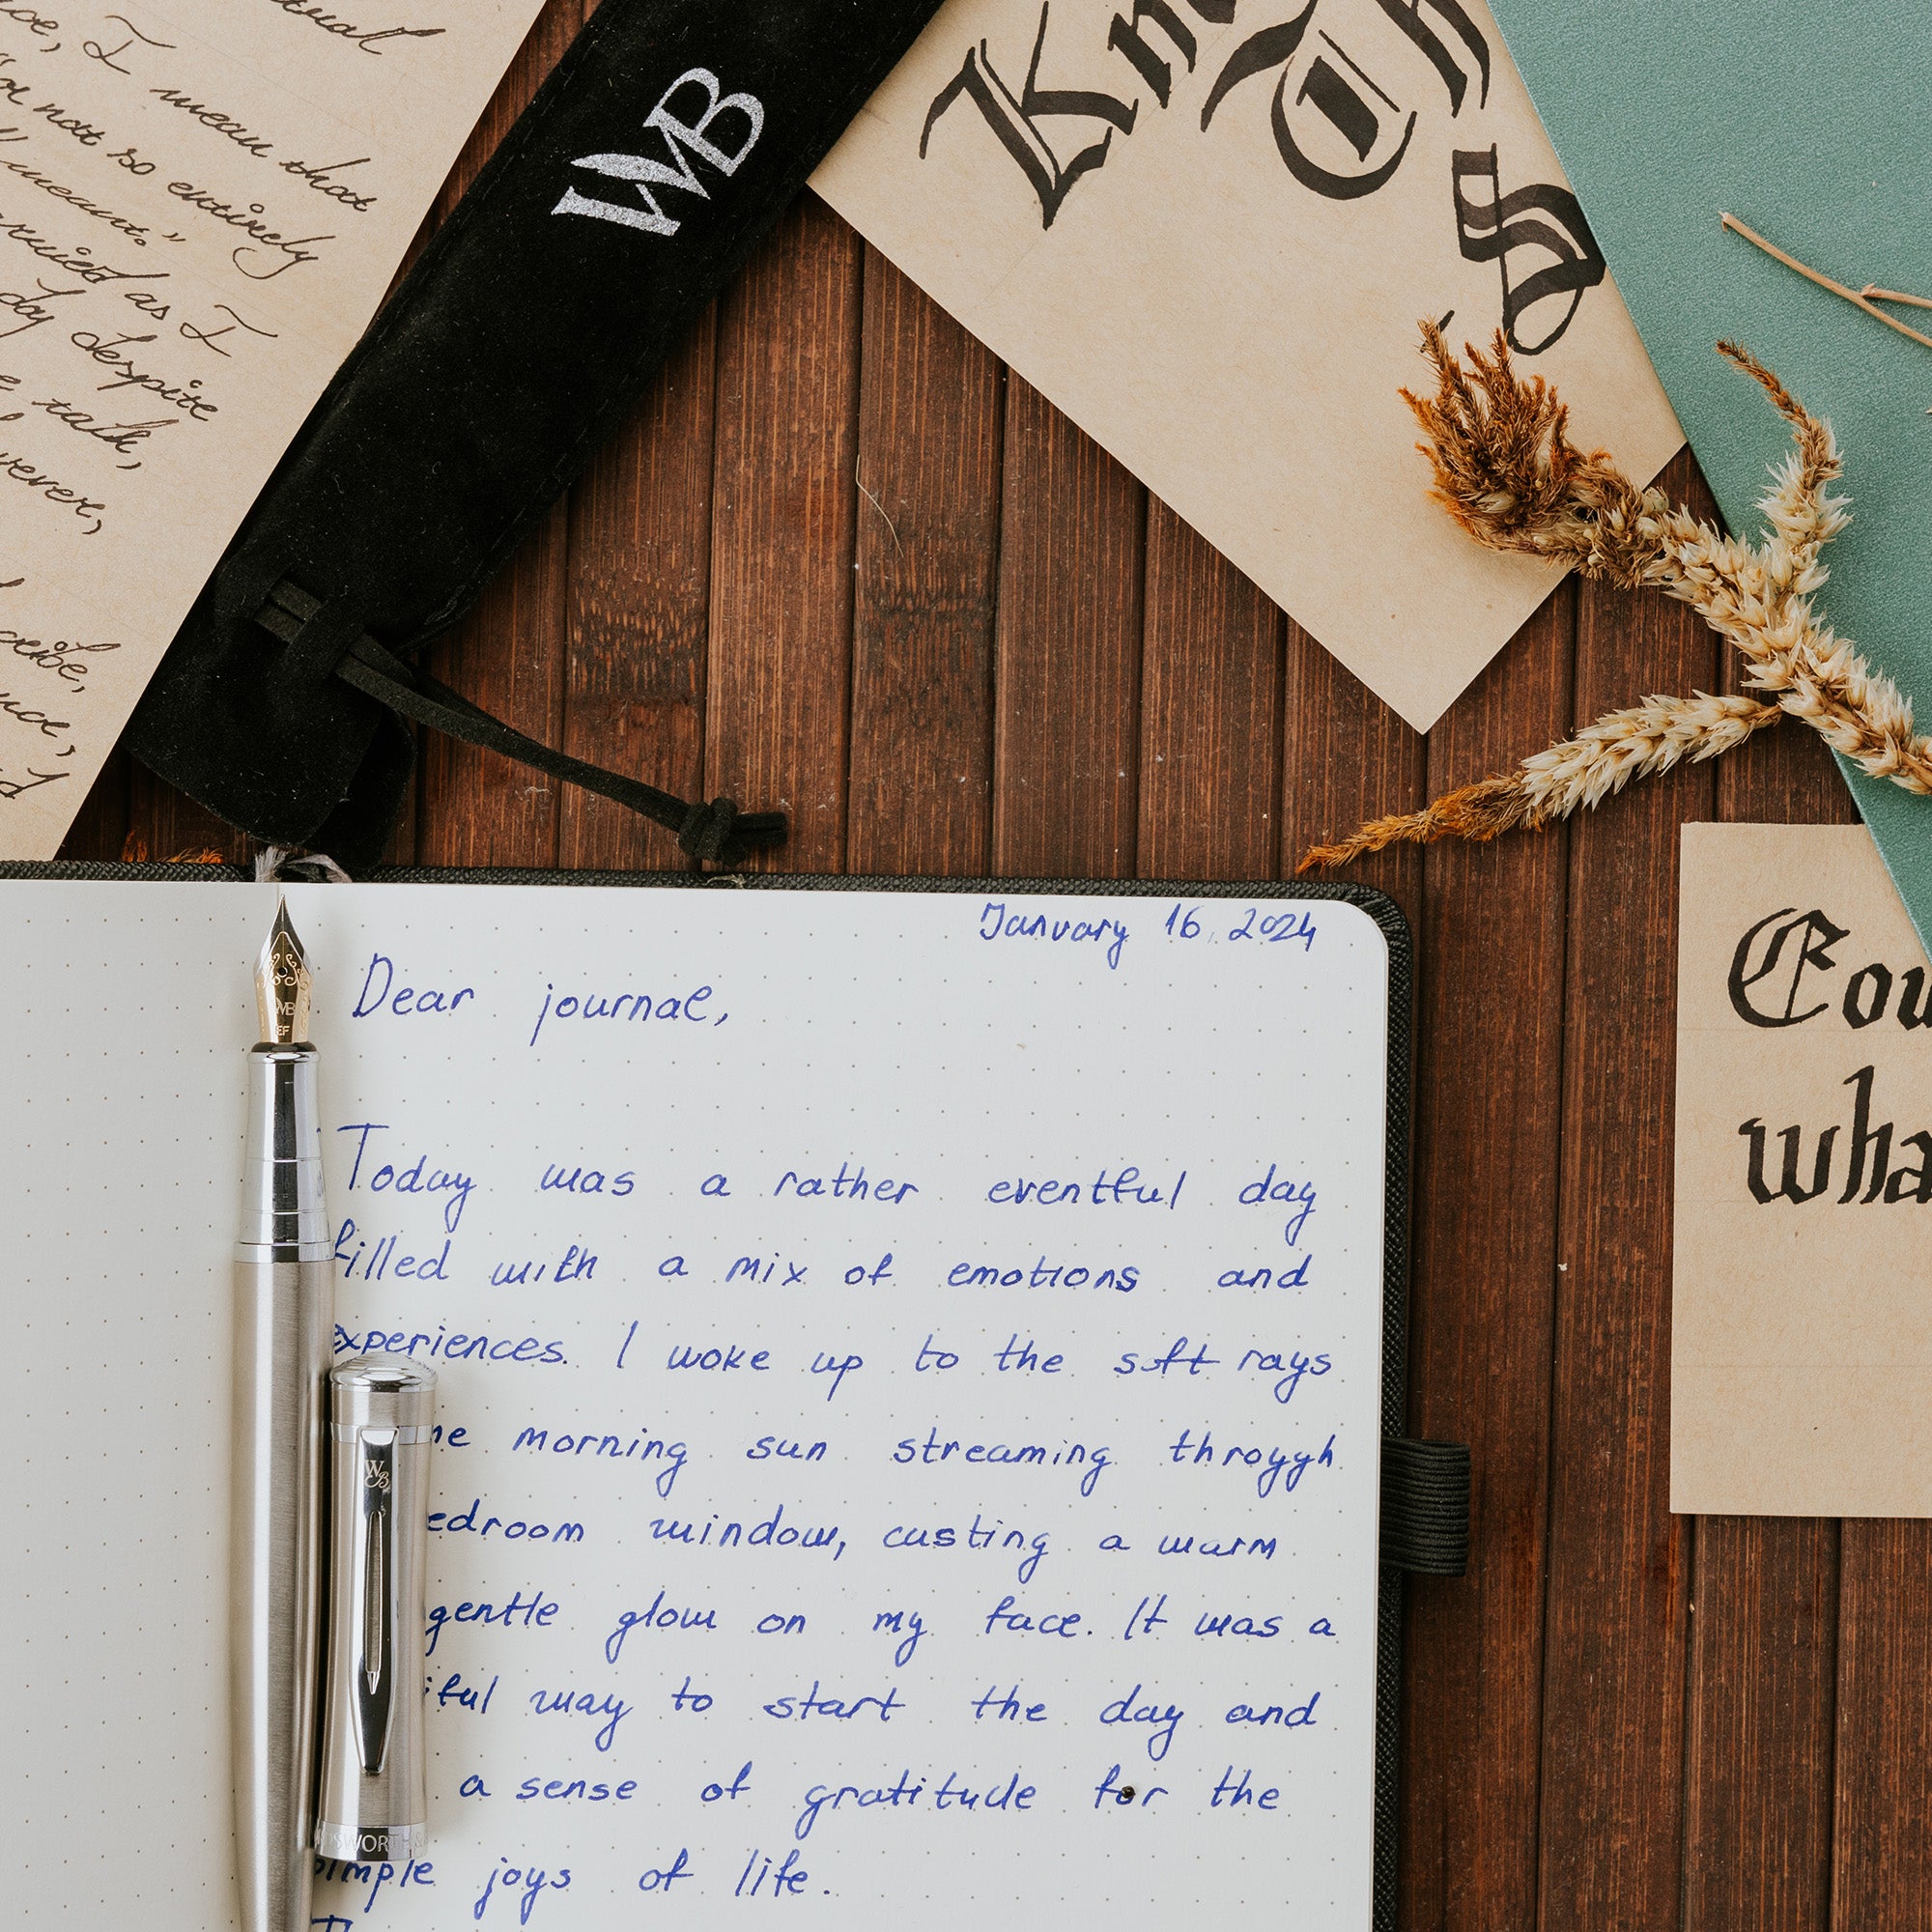 I mean that
not so entirely
meant."
as I
day despite
talk,
WB
January 16, 2024
Dear journal,
Today was a rather eventful day
filled with a mix of emotions and
experiences. I woke up to the soft rays
morning sun streaming throygh
window, casting a warm
gentle glow on my face. It was a
way to start the day and
a sense of gratitude for the
simple joys of life.
WB
EF
WB
wha